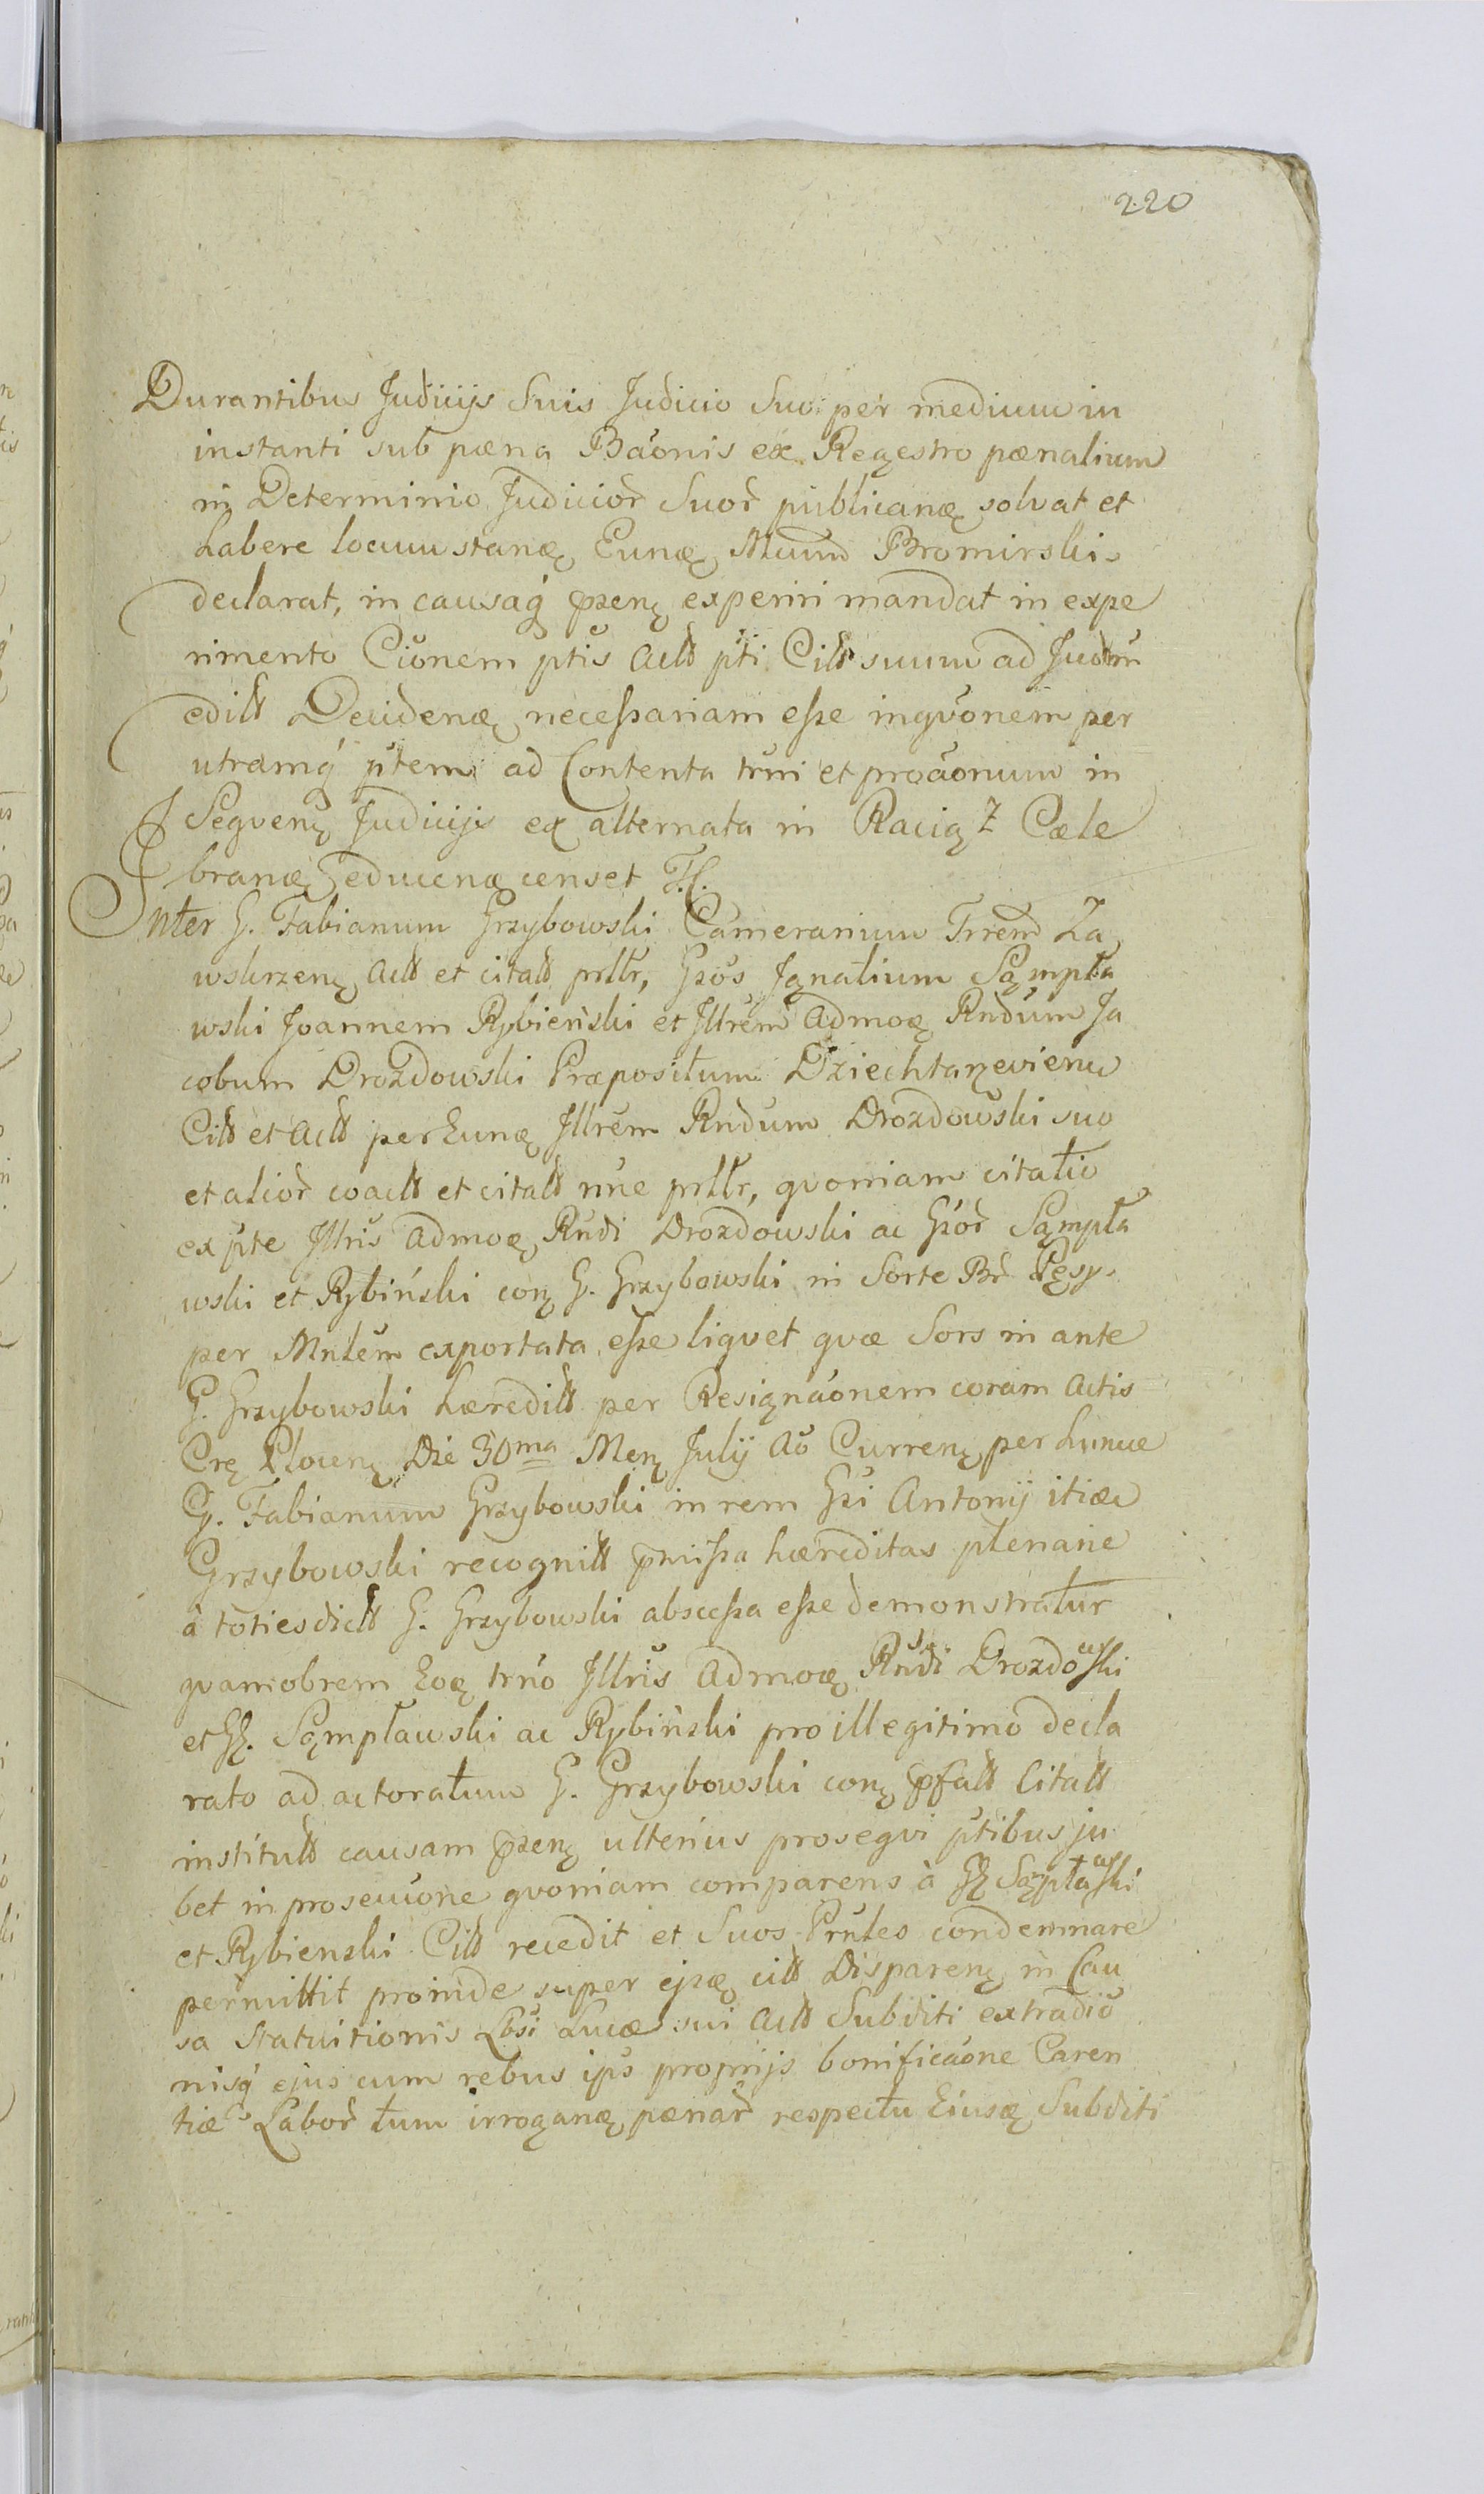 220
Durantibus Judicijs Suis Judicio Suo per medium in
instanti sub pæna Baonis ex Regestro pænalium
in Determinio Judicior Suor publicanæ solvat et
habere locum stanæ Eunæ Mcum Bromirski
declarat, in causaq pzenę experiri mandat in expe
rimento Cionem ptis Actt pti Citt suum ad Judm
editt Decidenæ necessariam esse inqvonem per
utramq ptem ad Contenta trni et proaonum in
Seqvenę Judicijs ex alternata in Raciąz Cæle
branæ educenæ censet
Inter G. Fabianum Grzybowski Camerarium Trrem Za
wskrzenę Actt et citatt prttr, Gzos Jgnatium Sąmpła
wski Joannem Rybieński et Jllrem Admoę Rndum Ja
cobum Drozdowski Præpositum
Citt et Actt per Eunæ Jllrem Rndum Drozdowski suo
et alior coactt et citatt nne prttr, qvoniam citatio
ex pte Jllris Admoę Rndi Drozdowski ac Gzor Sąmpła
wski et Rybiński conę G. Grzybowski in Sorte Br Pęsy
per Mnlem exportata esse liqvet qvæ Sors in ante
G. Grzybowski hæreditt per Resignaonem coram Actis
Crę Plocenę Die 30ma Menę Julij Ao Currenę per hunce
G. Fabianum Grzybowski in rem Gzi Antonij itiæ
Grzybowski recognitt pmissa hæreditas plenarie
à totiesdictt G. Grzybowski abscessa esse demonstratur
qvamobrem Eoę trno Jllris Admoę Rndi Drozdowski
et GG. Sąmpławski ac Rybiński pro illegitimo decla
rato ad actoratum G. Grzybowski conę pfatt Citatt
institutt causam pzenę ulterius proseqvi ptibus ju
bet in prosecuone qvoniam comparens à GG Sąpławski
et Rybienski Citt recedit et Suos Prnles condemnare
permittit proinde super ejsę citt Disparenę in Cau
sa Statuitionis Lbsi Lucæ sui Actt Subditi extradio
nisq ejus cum rebus ips proprijs bonificaone Caren
tiæ Labor tum irroganæ pænar respectu Eiusę Subditi